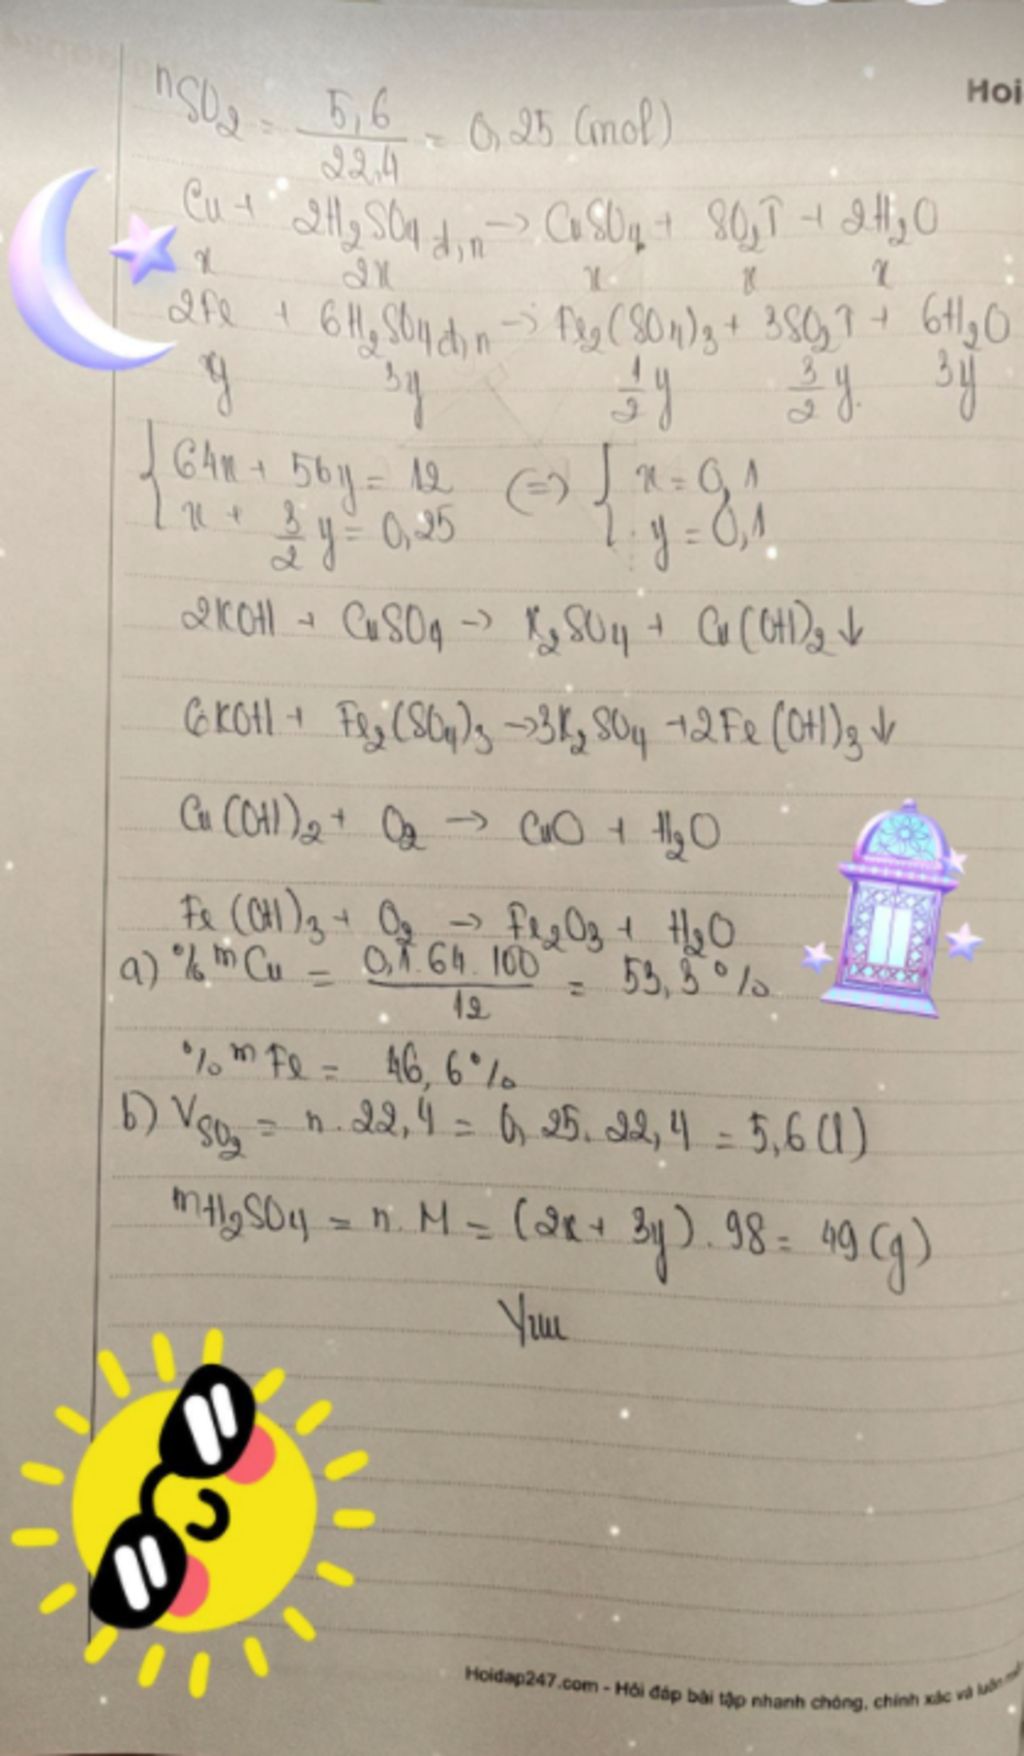 Hoi
nSO2 = 5,6/22,4 = 0,25 (mol)
Cu + 2H2SO4 đ,n → CuSO4 + SO2↑ + 2H2O
x 2x x x x
2Fe + 6H2SO4 đ,n → Fe2(SO4)3 + 3SO2↑ + 6H2O
y 3y 1/2 y 3/2 y 3y
{ 64x + 56y = 12 (=) { x = 0,1
{ x + 3/2 y = 0,25 { y = 0,1
2KOH + CuSO4 → K2SO4 + Cu(OH)2↓
6KOH + Fe2(SO4)3 → 3K2SO4 + 2Fe(OH)3↓
Cu(OH)2 + O2 → CuO + H2O
Fe(OH)3 + O2 → Fe2O3 + H2O
a) %mCu = 0,1.64.100/12 = 53,3%
%mFe = 46,6%
b) VSO2 = n.22,4 = 0,25.22,4 = 5,6(l)
mH2SO4 = n.M = (2x + 3y).98 = 49(g)
Hoidap247.com - Hỏi đáp bài tập nhanh chóng, chính xác và luôn